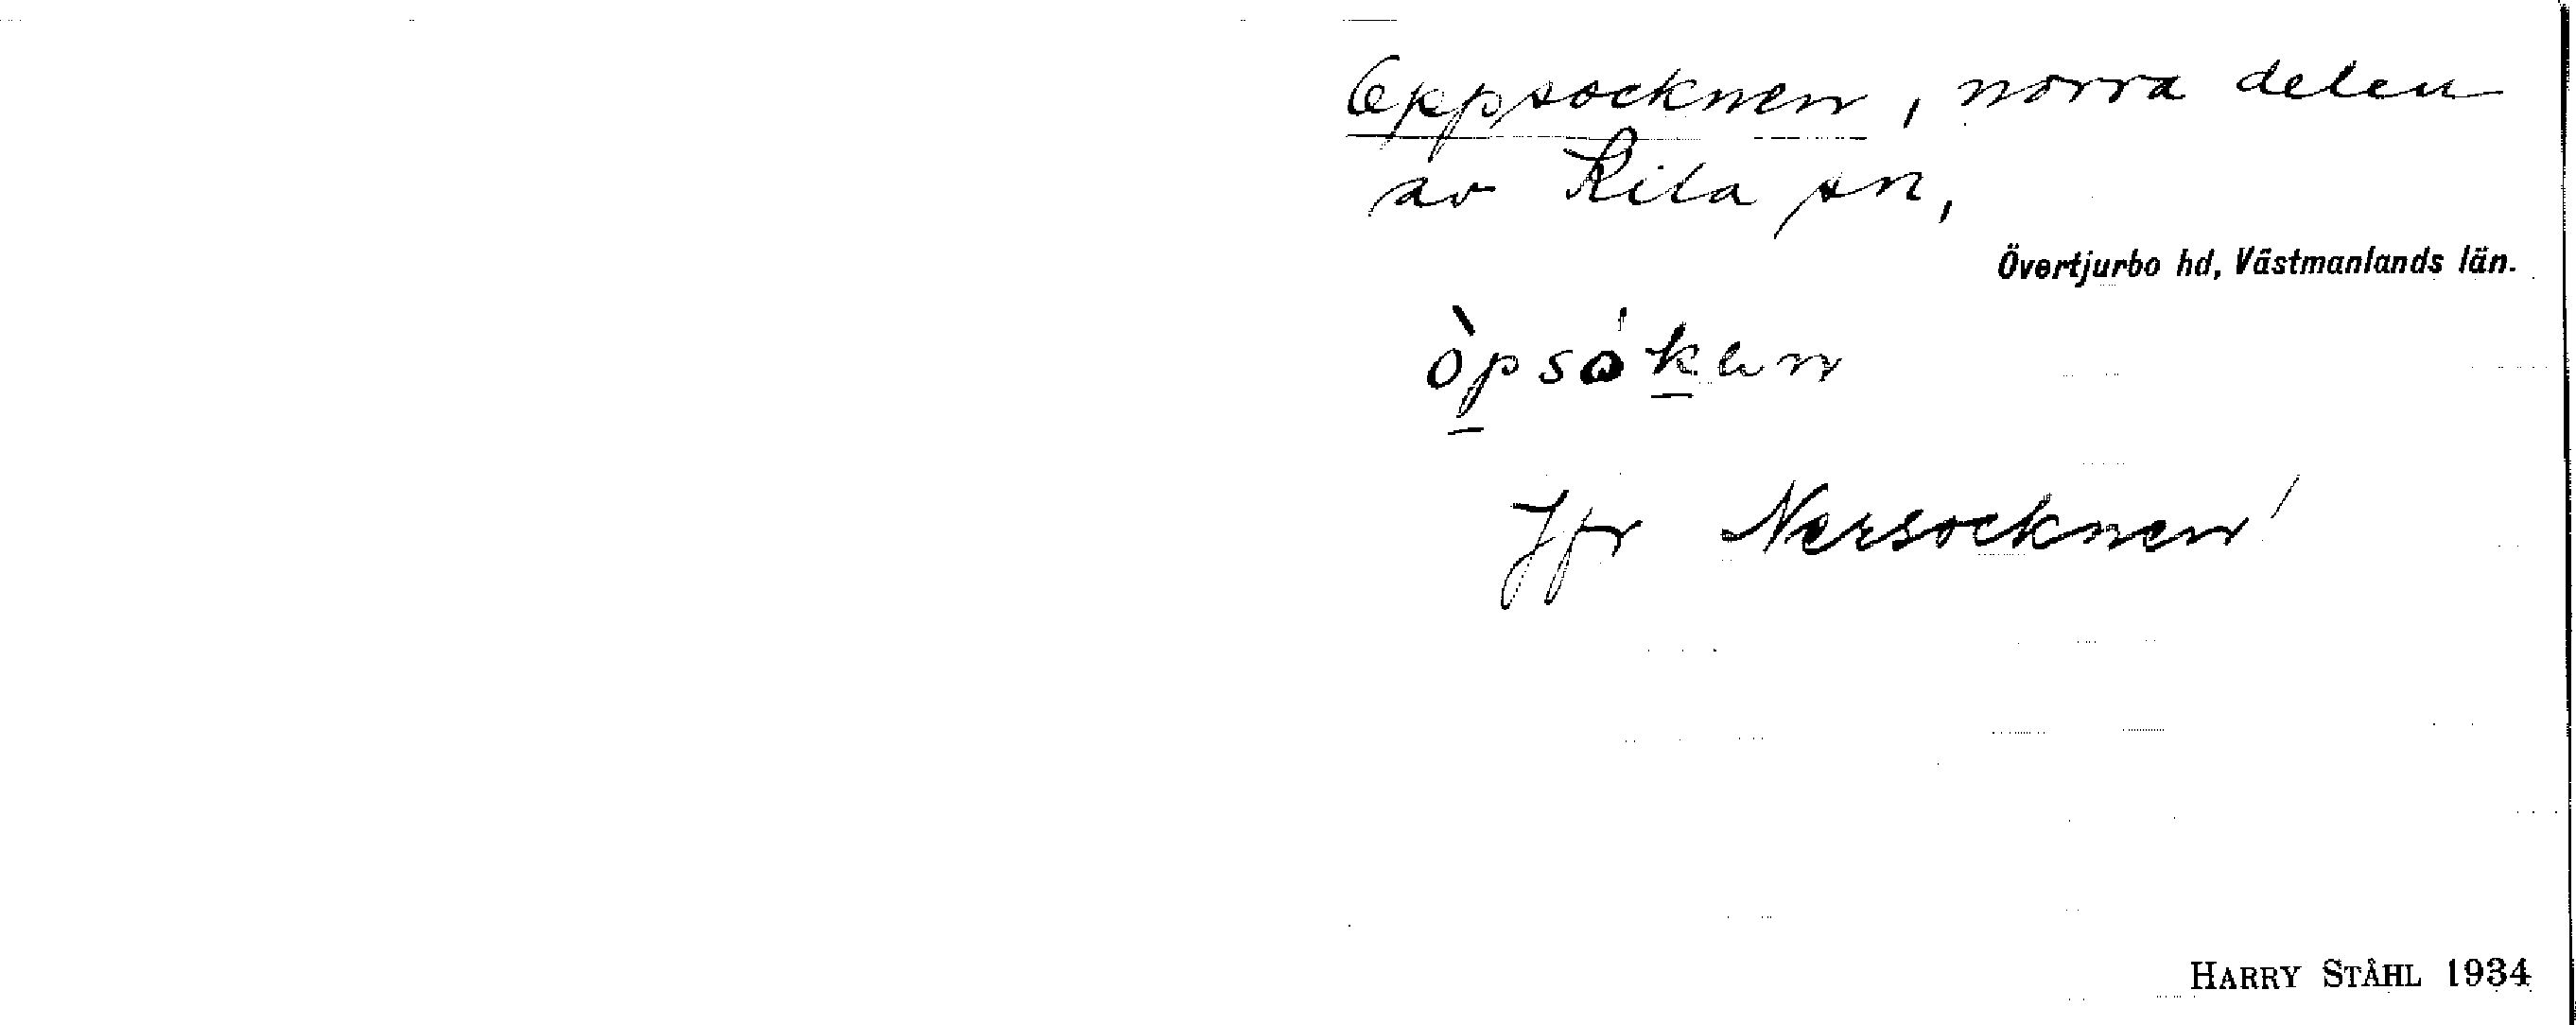 Oppsocknen, norra delen
av Kila sn,
Övertjurbo hd, Västmanlands län.
Jfr Nersocknen!
HARRY STÅHL 1934